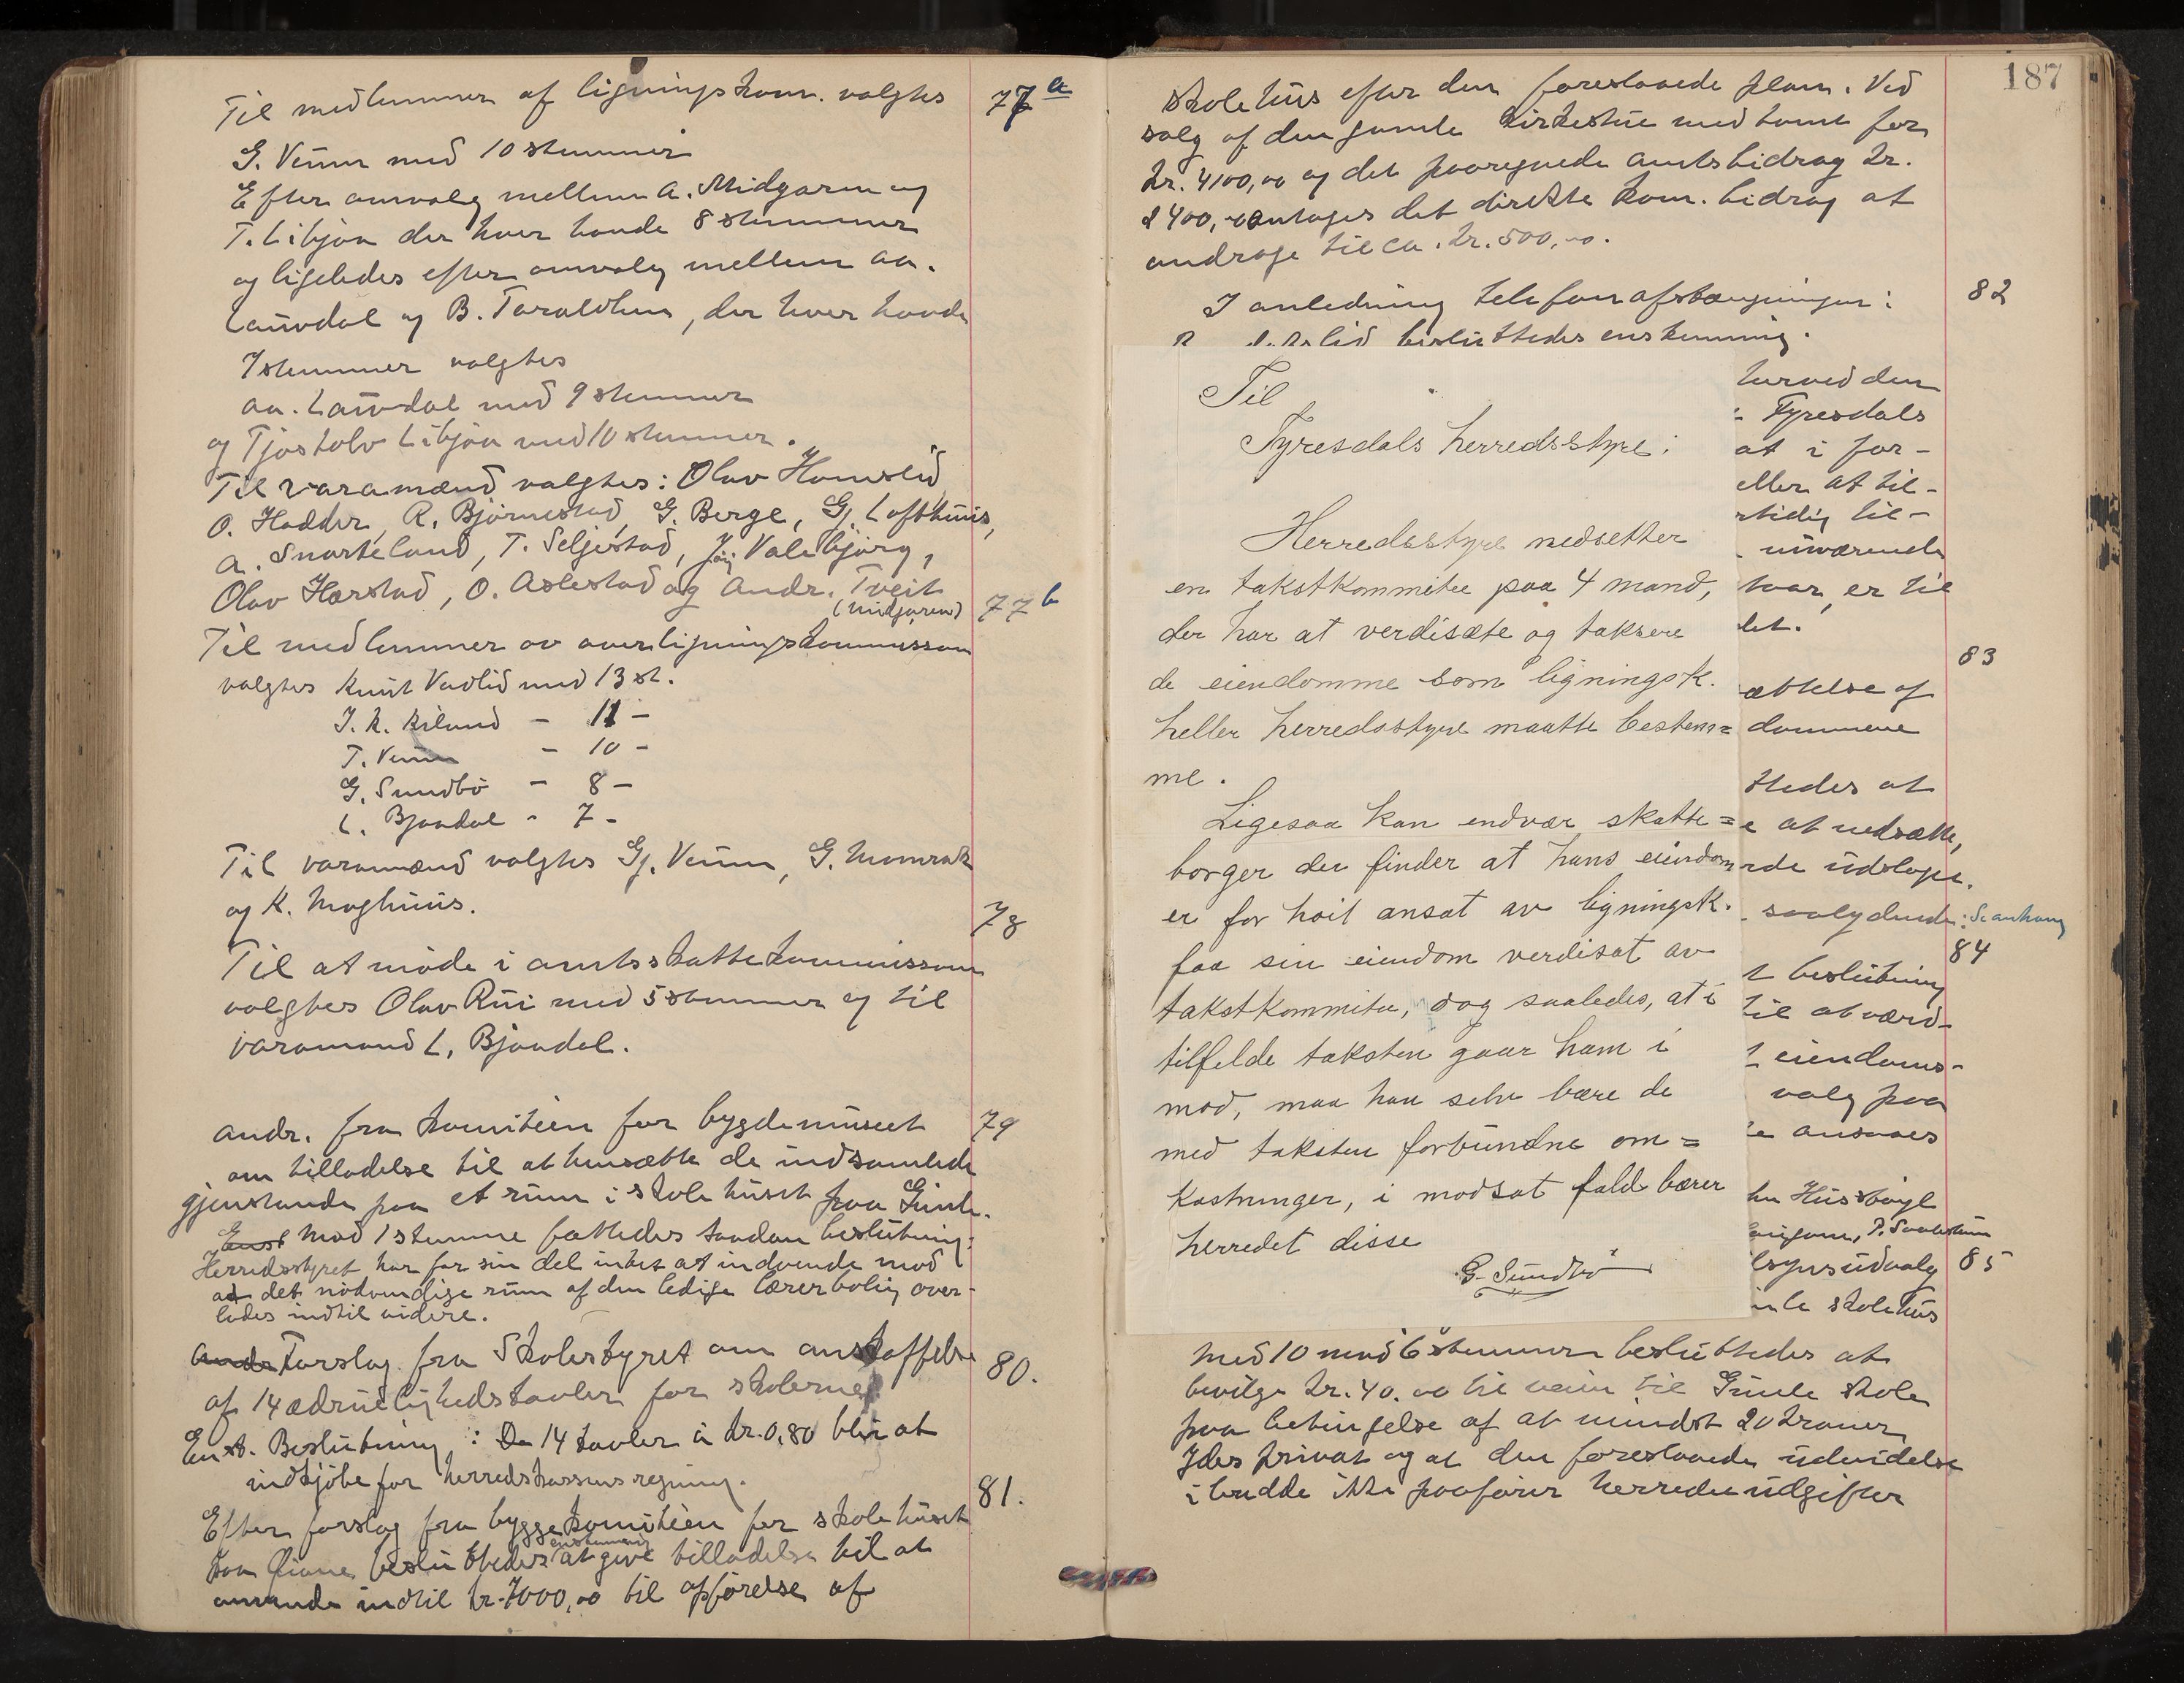 Til medlemmer af ligningskom. valgtes 77 a
G. Veum med 10 stemmer
Efter omvalg mellem A. Midgarm og
T. Libjoa der hver havde 8 stemmer
og ligeledes efter omvalg mellem Aa.
Lauvdal og B. Taraldlien, der hver havde
7 stemmer valgtes
Aa. Lauvdal med 9 stemmer
og Tjostolv Libjoa med 10 stemmer.
Til varamænd valgtes: Olav Homslid
O. Hadder, R. Bjørnestad, G. Berge, Gj. Lofthuus,
A. Snarteland, T. Seljestad, Valebjørg,
Olav Harstad, O. Aslestad og Andr. Tveit
(midgaren) 77 b
Til medlemmer av overligningskommission
valgtes Knut Vadlid med 13 st.
J. K. Kiland – 11 –
T. Veum – 10 –
G. Sundbø – 8 –
L. Bjaadal – 7 –
Til varamænd valgtes Gj. Veum, G. Momrak
og K. Moghuus.
78
Til at møde i amtsskattekommission
valgtes Olav Rui med 5 stemmer og til
varamand L. Bjaadal.
Andr. fra komitéen for bygdemuseet 79
om tilladelse til at hensætte de indsamlede
gjenstande paa et rum i skolehuset paa Gimle.
Enst Mod 1 stemme fattedes saadan beslutning:
Herredsstyret har for sin del intet at indvende mod
at det nødvendige rum af den ledige lærerbolig over-
lades indtil videre.
Andr Forslag fra Skolestyret om anskaffelse 80.
af 14 ædruelighedstavler for skolerne
Enst. Beslutning: De 14 tavler à kr. 0,80 blir at
indkjøbe for herredskassens regning.
81.
Efter forslag fra byggekomitéen for skolehuset
enstemmig
paa besluttedes at give tilladelse til at
anvende indtil kr. 7000,00 til opførelse af
187
skolehus efter den foreslaaede plan. Ved
salg af den gamle kirkestue med tomt for
kr. 4100,00 og det paaregnede amtsbidrag kr.
2400,00 antages det direkte kom. bidrag at
andrage til ca. kr. 500,00.
I anledning telefonafstængningen i 82
besluttedes enstemmig:
Til
Tyresdals herredsstyre:
Herredsstyre nedsetter
en takstkommitee paa 4 mand,
der har at verdisæte og taksere
de eiendomme som ligningsk.
heller herredsstyre maatte bestem=
me.
Ligesaa kan endvær skatte=
borger der finder at hans eiendom
er for høit ansat av ligningsk.
faa sin eiendom verdisat av
takstkommiten, dog saaledes, at i
tilfelde taksten gaar ham i
mod, maa han selv bære de
med taksten forbundne om=
kostninger, i modsat fald bærer
herredet disse
G. Sundbø
herved den
Tyresdals
at i for-
eller at til-
rtidig til-
nuværende
svar, er til
let.
83
ættelse af
dommene
ttedes at
e at nedsætte,
rde udslaget.
saalydende: Se anhang
84
t beslutning
til at værd-
t eiendoms-
valg paa
te ansaaes
85
lsynsudvalg
mle skolehus
Med 10 mod 6 stemmer besluttedes at
bevilge kr. 40.00 til vain til Gimle skole
paa betingelse af at mindst 20 kroner
ydes privat og at den foreslaaede udvidelse
i bredde ikke paafører herredet udgifter